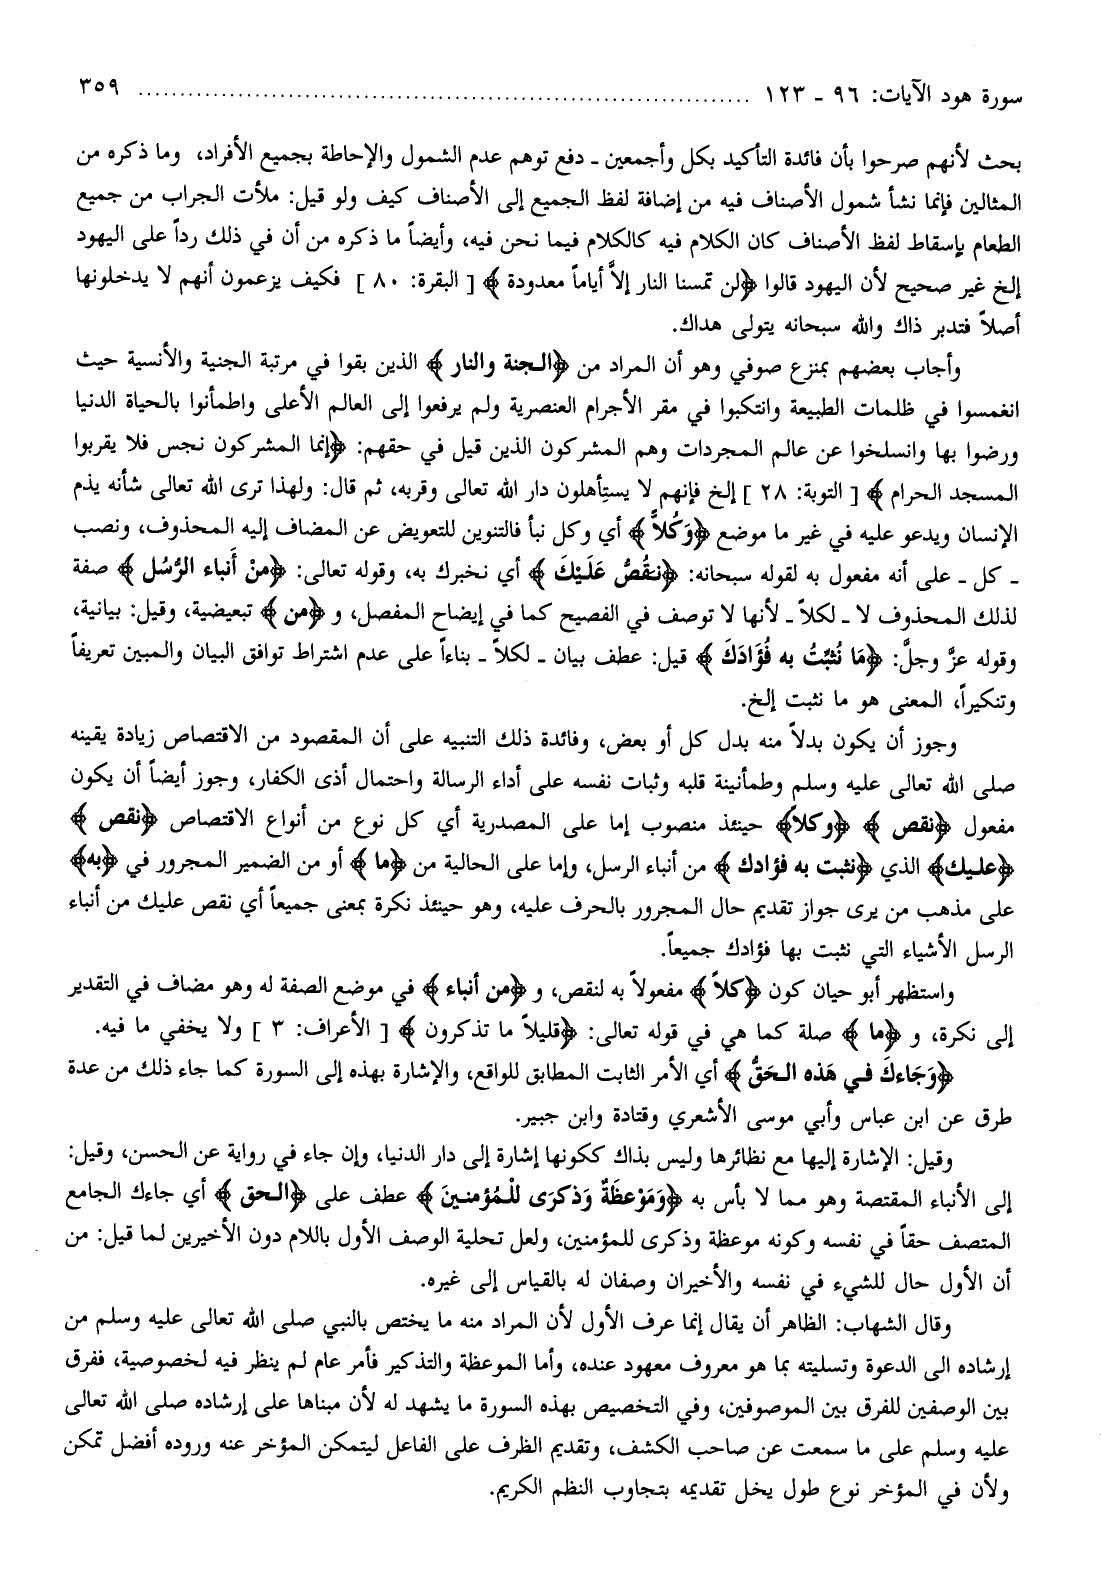 سورة هود الآيات: ٩٦ - ١٢٣ ........................................................ ٣٥٩
بحث لأنهم صرحوا بأن فائدة التأكيد بكل وأجمعين ـ دفع توهم عدم الشمول والإحاطة بجميع الأفراد، وما ذكره من
المثالين فإنما نشأ شمول الأصناف فيه من إضافة لفظ الجميع إلى الأصناف كيف ولو قيل: ملأت الجراب من جميع
الطعام بإسقاط لفظ الأصناف كان الكلام فيه كالكلام فيما نحن فيه، وأيضاً ما ذكره من أن في ذلك رداً على اليهود
إلخ غير صحيح لأن اليهود قالوا ﴿لن تمسنا النار إلاَّ أياماً معدودة ﴾ [ البقرة: ٨٠ ] فكيف يزعمون أنهم لا يدخلونها
أصلاً فتدبر ذاك والله سبحانه يتولى هداك.
وأجاب بعضهم بمنزع صوفي وهو أن المراد من ﴿الجنة والنار ﴾ الذين بقوا في مرتبة الجنية والأنسية حيث
انغمسوا في ظلمات الطبيعة وانتكبوا في مقر الأجرام العنصرية ولم يرفعوا إلى العالم الأعلى واطمأنوا بالحياة الدنيا
ورضوا بها وانسلخوا عن عالم المجردات وهم المشركون الذين قيل في حقهم: ﴿إنما المشركون نجس فلا يقربوا
المسجد الحرام ﴾ [ التوبة: ٢٨ ] إلخ فإنهم لا يستأهلون دار الله تعالى وقربه، ثم قال: ولهذا ترى الله تعالى شأنه يذم
الإنسان ويدعو عليه في غير ما موضع ﴿وَكُلاًّ ﴾ أي وكل نبأ فالتنوين للتعويض عن المضاف إليه المحذوف، ونصب
ـ كل ـ على أنه مفعول به لقوله سبحانه: ﴿نَقُصُّ عَلَيْكَ ﴾ أي نخبرك به، وقوله تعالى: ﴿منْ أَنباء الرُّسُل ﴾ صفة
لذلك المحذوف لا ـ لكلاً ـ لأنها لا توصف في الفصيح كما في إيضاح المفصل، و ﴿من ﴾ تبعيضية، وقيل: بيانية،
وقوله عزَّ وجلَّ: ﴿مَا نُثبِّتُ به فُؤَادَكَ ﴾ قيل: عطف بيان ـ لكلاً ـ بناءاً على عدم اشتراط توافق البيان والمبين تعريفاً
وتنكيراً، المعنى هو ما نثبت إلخ.
وجوز أن يكون بدلاً منه بدل كل أو بعض، وفائدة ذلك التنبيه على أن المقصود من الاقتصاص زيادة يقينه
صلى الله تعالى عليه وسلم وطمأنينة قلبه وثبات نفسه على أداء الرسالة واحتمال أذى الكفار، وجوز أيضاً أن يكون
مفعول ﴿نقص ﴾ ﴿وكلاً﴾ حينئذ منصوب إما على المصدرية أي كل نوع من أنواع الاقتصاص ﴿نقص ﴾
﴿عليك﴾ الذي ﴿نثبت به فؤادك ﴾ من أنباء الرسل، وإما على الحالية من ﴿ما ﴾ أو من الضمير المجرور في ﴿به﴾
على مذهب من يرى جواز تقديم حال المجرور بالحرف عليه، وهو حينئذ نكرة بمعنى جميعاً أي نقص عليك من أنباء
الرسل الأشياء التي نثبت بها فؤادك جميعاً.
واستظهر أبو حيان كون ﴿كلاً ﴾ مفعولاً به لنقص، و ﴿من أنباء ﴾ في موضع الصفة له وهو مضاف في التقدير
إلى نكرة، و ﴿ما ﴾ صلة كما هي في قوله تعالى: ﴿قليلاً ما تذكرون ﴾ [ الأعراف: ٣ ] ولا يخفي ما فيه.
﴿وَجَاءكَ في هَذه الحَقُّ ﴾ أي الأمر الثابت المطابق للواقع، والإشارة بهذه إلى السورة كما جاء ذلك من عدة
طرق عن ابن عباس وأبي موسى الأشعري وقتادة وابن جبير.
وقيل: الإشارة إليها مع نظائرها وليس بذاك ككونها إشارة إلى دار الدنيا، وإن جاء في رواية عن الحسن، وقيل:
إلى الأنباء المقتصة وهو مما لا بأس به ﴿وَمَوْعظَةٌ وَذكرَى للْمُؤمنينَ ﴾ عطف على ﴿الحق ﴾ أي جاءك الجامع
المتصف حقاً في نفسه وكونه موعظة وذكرى للمؤمنين، ولعل تحلية الوصف الأول باللام دون الأخيرين لما قيل: من
أن الأول حال للشيء في نفسه والأخيران وصفان له بالقياس إلى غيره.
وقال الشهاب: الظاهر أن يقال إنما عرف الأول لأن المراد منه ما يختص بالنبي صلى الله تعالى عليه وسلم من
إرشاده الى الدعوة وتسليته بما هو معروف معهود عنده، وأما الموعظة والتذكير فأمر عام لم ينظر فيه لخصوصية، ففرق
بين الوصفين للفرق بين الموصوفين، وفي التخصيص بهذه السورة ما يشهد له لأن مبناها على إرشاده صلى الله تعالى
عليه وسلم على ما سمعت عن صاحب الكشف، وتقديم الظرف على الفاعل ليتمكن المؤخر عنه وروده أفضل تمكن
ولأن في المؤخر نوع طول يخل تقديمه بتجاوب النظم الكريم.